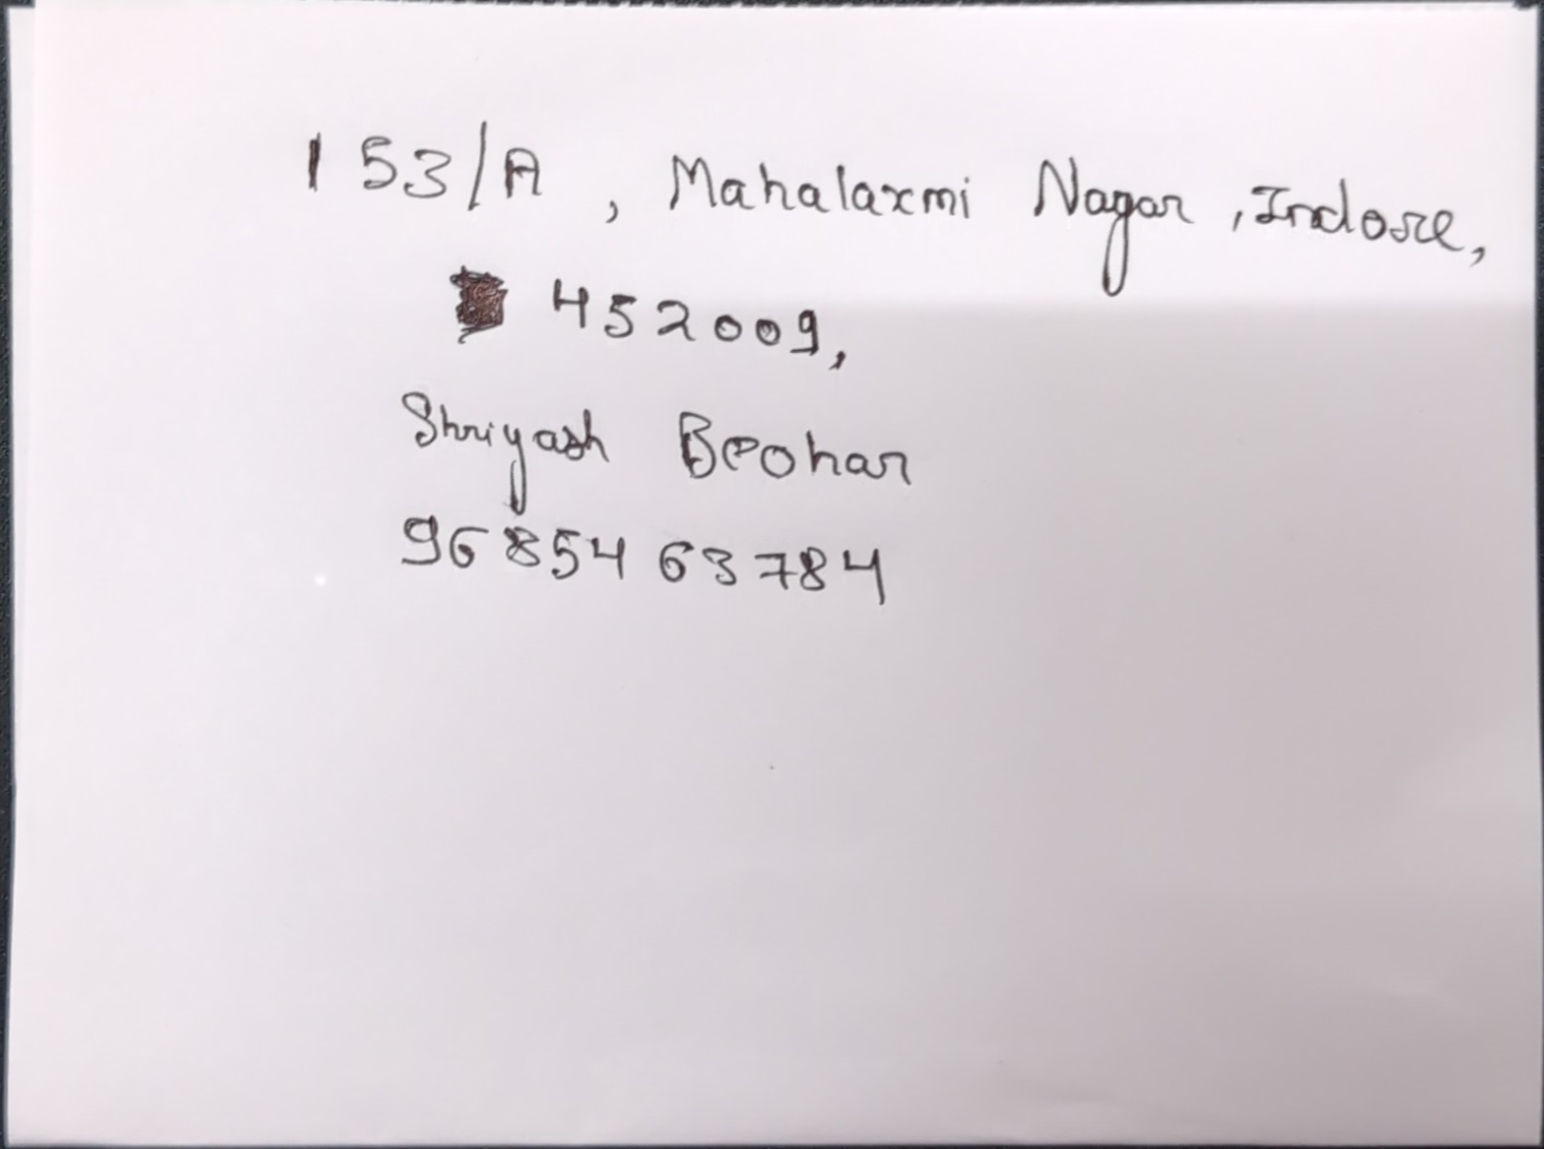 153/A, Mahalaxmi Nagar, Indore,
452009,
Shriyash Beohar
9685463784